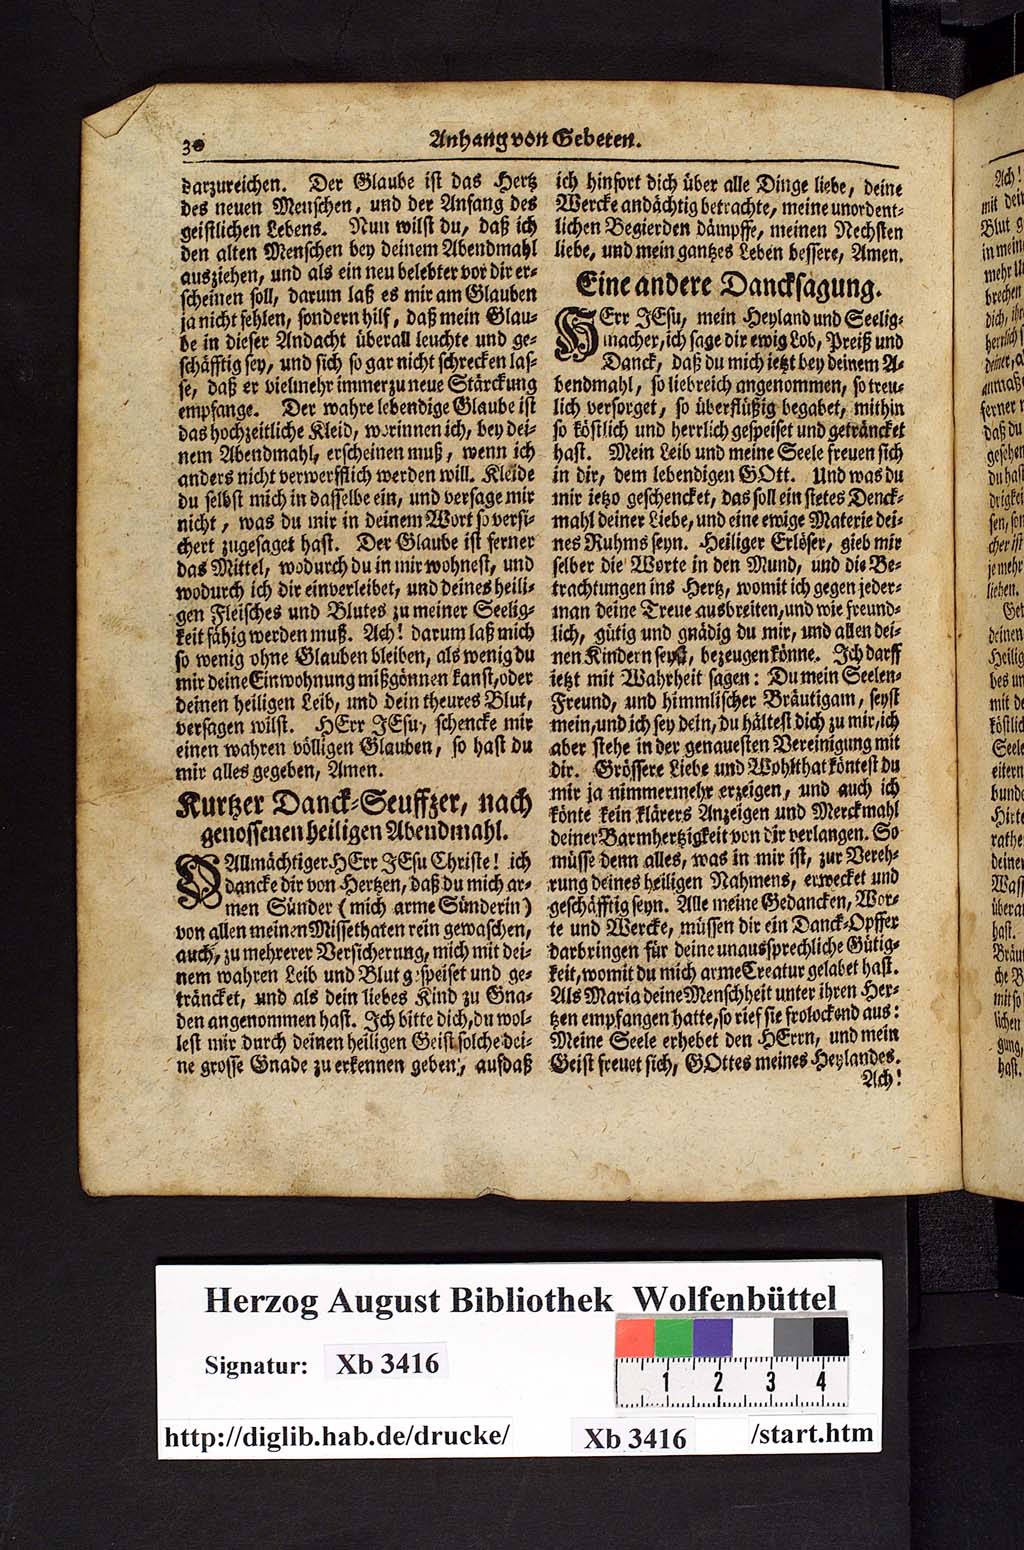 30
Anhang von Gebeten.
darzureichen. Der Glaube ist das Hertz
des neuen Menschen, und der Anfang des
geistlichen Lebens. Nun wilst du, daß ich
den alten Menschen bey deinem Abendmahl
ausziehen, und als ein neu belebter vor dir er-
scheinen soll, darum laß es mir am Glauben
ja nicht fehlen, sondern hilf, daß mein Glau-
be in dieser Andacht überall leuchte und ge-
schäfftig sey, und sich so gar nicht schrecken las-
se, daß er vielmehr immerzu neue Stärckung
empfange. Der wahre lebendige Glaube ist
das hochzeitliche Kleid, worinnen ich, bey dei-
nem Abendmahl, erscheinen muß, wenn ich
anders nicht verwerfflich werden will. Kleide
du selbst mich in dasselbe ein, und versage mir
nicht, was du mir in deinem Wort so versi-
chert zugesaget hast. Der Glaube ist ferner
das Mittel, wodurch du in mir wohnest, und
wodurch ich dir einverleibet, und deines heili-
gen Fleisches und Blutes zu meiner Seelig-
keit fähig werden muß. Ach! darum laß mich
so wenig ohne Glauben bleiben, als wenig du
mir deine Einwohnung mißgönnen kanst, oder
deinen heiligen Leib, und dein theures Blut,
versagen wilst. HErr JEsu, schencke mir
einen wahren völligen Glauben, so hast du
mir alles gegeben, Amen.
Kurtzer Danck-Seuffzer, nach
genossenen heiligen Abendmahl.
O Allmächtiger HErr JEsu Christe! ich
dancke dir von Hertzen, daß du mich ar-
men Sünder (mich arme Sünderin)
von allen meinen Missethaten rein gewaschen,
auch, zu mehrerer Versicherung, mich mit dei-
nem wahren Leib und Blut gespeiset und ge-
träncket, und als dein liebes Kind zu Gna-
den angenommen hast. Ich bitte dich, du wol-
lest mir durch deinen heiligen Geist solche dei-
ne grosse Gnade zu erkennen geben, aufdaß
ich hinfort dich über alle Dinge liebe, deine
Wercke andächtig betrachte, meine unordent-
lichen Begierden dämpffe, meinen Nechsten
liebe, und mein gantzes Leben bessere, Amen.
Eine andere Dancksagung.
HErr JEsu, mein Heyland und Seelig-
macher, ich sage dir ewig Lob, Preiß und
Danck, daß du mich ietzt bey deinem A-
bendmahl, so liebreich angenommen, so treu-
lich versorget, so überflüßig begabet, mithin
so köstlich und herrlich gespeiset und geträncket
hast. Mein Leib und meine Seele freuen sich
in dir, dem lebendigen GOtt. Und was du
mir ietzo geschencket, das soll ein stetes Denck-
mahl deiner Liebe, und eine ewige Materie dei-
nes Ruhms seyn. Heiliger Erlöser, gieb mir
selber die Worte in den Mund, und die Be-
trachtungen ins Hertz, womit ich gegen jeder-
man deine Treue ausbreiten, und wie freund-
lich, gütig und gnädig du mir, und allen dei-
nen Kindern seyst, bezeugen könne. Ich darff
ietzt mit Wahrheit sagen: Du mein Seelen-
Freund, und himmlischer Bräutigam, seyst
mein, und ich sey dein, du hältest dich zu mir, ich
aber stehe in der genauesten Vereinigung mit
dir. Grössere Liebe und Wohlthat köntest du
mir ja nimmermehr erzeigen, und auch ich
könte kein klärers Anzeigen und Merckmahl
deiner Barmhertzigkeit von dir verlangen. So
müsse denn alles, was in mir ist, zur Vereh-
rung deines heiligen Nahmens, erwecket und
geschäfftig seyn. Alle meine Gedancken, Wor-
te und Wercke, müssen dir ein Danck-Opffer
darbringen für deine unaussprechliche Gütig-
keit, womit du mich arme Creatur gelabet hast.
Als Maria deine Menschheit unter ihren Her-
tzen empfangen hatte, so rief sie frolockend aus:
Meine Seele erhebet den HErrn, und mein
Geist freuet sich, GOttes meines Heylandes.
Ach!
Herzog August Bibliothek Wolfenbüttel
Signatur: Xb 3416
1 2 3 4
http://diglib.hab.de/drucke/ Xb 3416 /start.htm